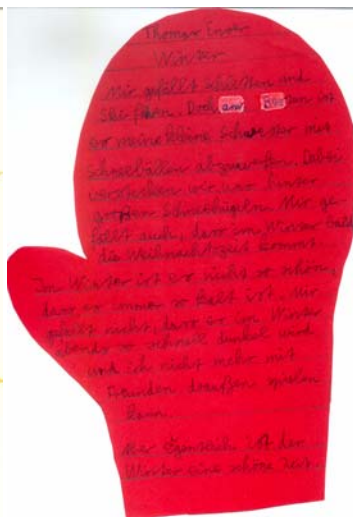 Thomas
Winter
Mir gefällt Schlitten und
Ski fahren. Doch am ist
es meine kleine Schwester mit
Schneebällen abzuwerfen. Dabei
verstecken wir uns hinter
großen Schneehügeln. Mir ge-
fällt auch, dass im Winter bald
die Weihnachtszeit kommt.
Im Winter ist es nicht so schön,
dass es immer so kalt ist. Mir
gefällt nicht, dass es im Winter
abends so schnell dunkel wird
und ich nicht mehr mit
Freunden draußen spielen
kann.
Aber eigentlich ist der
Winter eine schöne Zeit.